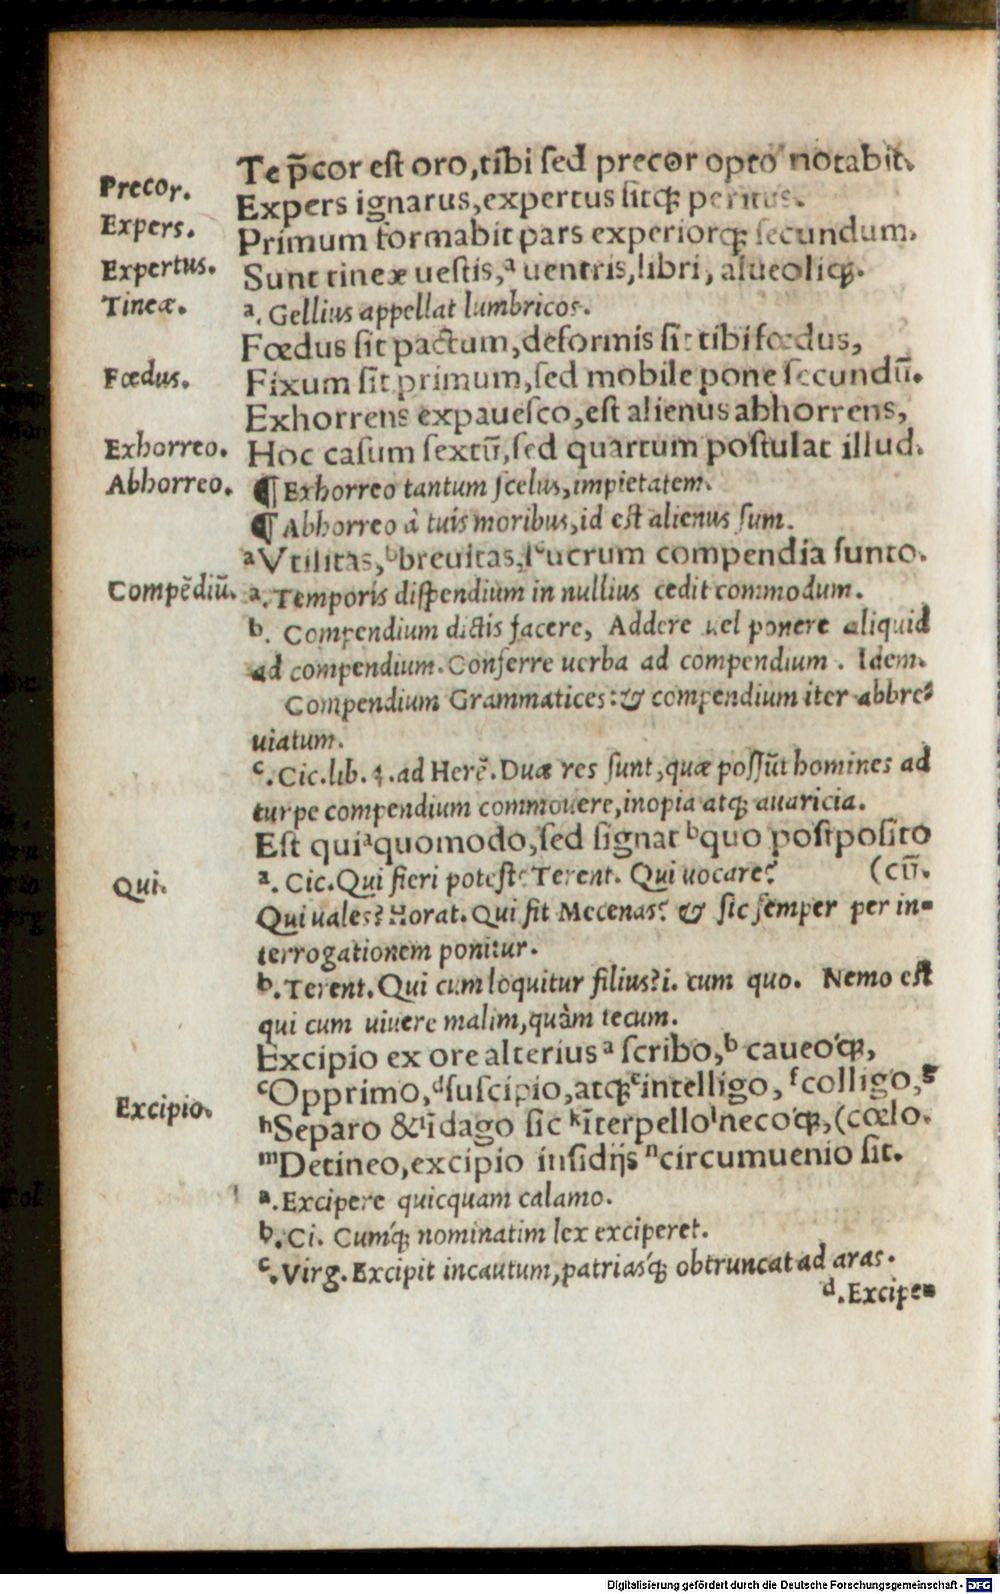 Te p̃cor est oro, tibi sed precor opto notabit.
Precor.
Expers ignarus, expertus sitq; peritus.
Expers.
Primum formabit pars experiorq; secundum.
Expertus.
Sunt tineæ uestis, ᵃ uentris, libri, alueoliq;.
Tineæ.
ᵃ. Gellius appellat lumbricos.
Fœdus sit pactum, deformis sit tibi fœdus,
Fœdus.
Fixum sit primum, sed mobile pone secundū.
Exhorrens expauesco, est alienus abhorrens,
Exhorreo.
Hoc casum sextū, sed quartum postulat illud.
Abhorreo.
¶ Exhorreo tantum scelus, impietatem.
¶ Abhorreo à tuis moribus, id est alienus sum.
ᵃ Vtilitas, ᵇ breuitas, lᶜucrum compendia sunto.
Compēdiū.
ᵃ. Temporis dispendium in nullius cedit commodum.
ᵇ. Compendium dictis facere, Addere uel ponere aliquid
ad compendium. Conferre uerba ad compendium. Idem.
Compendium Grammatices: & compendium iter abbre⸗
uiatum.
ᶜ. Cic. lib. 4. ad Herē. Duæ res sunt, quæ possūt homines ad
turpe compendium commouere, inopia atq; auaricia.
Est qui ᵃ quomodo, sed signat ᵇ quo postposito
(cū.
Qui.
ᵃ. Cic. Qui fieri potest? Terent. Qui uocare?
Qui uales? Horat. Qui fit Mecenas? & sic semper per in⸗
terrogationem ponitur.
ᵇ. Terent. Qui cum loquitur filius? i. cum quo. Nemo est
qui cum uiuere malim, quàm tecum.
Excipio ex ore alterius ᵃ scribo, ᵇ caueoq́;,
ᶜ Opprimo, ᵈ suscipio, atq; ᵉ intelligo, ᶠ colligo, ᵍ
Excipio.
ʰ Separo & ⁱ īdago sic ᵏ īterpello ˡ necoq́;, (cœlo.
ᵐ Detineo, excipio insidijs ⁿ circumuenio sit.
ᵃ. Excipere quicquam calamo.
ᵇ. Ci. Cumq́; nominatim lex exciperet.
ᶜ. Virg. Excipit incautum, patriasq́; obtruncat ad aras.
ᵈ. Excipe⸗
Digitalisierung gefördert durch die Deutsche Forschungsgemeinschaft - DFG